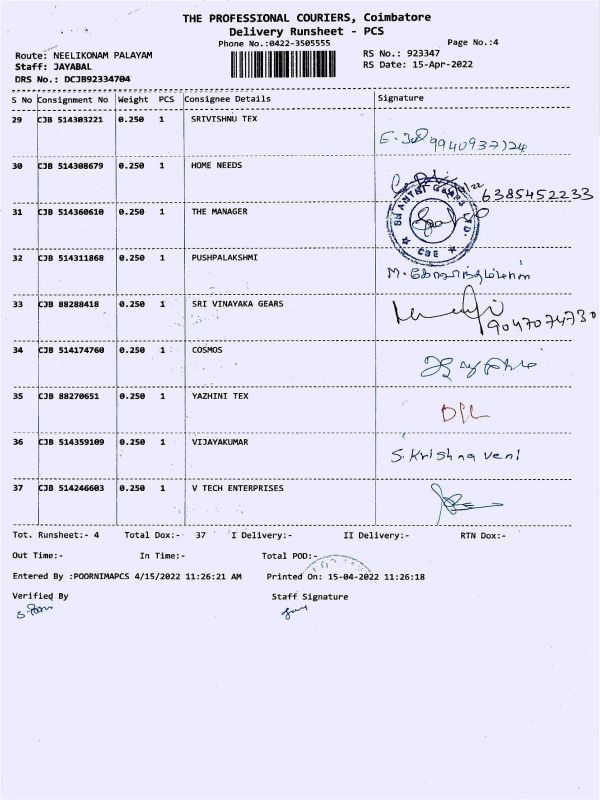 THE PROFESSIONAL COURIERS, Coimbatore
Delivery Runsheet - PCS
Phone No.:0422-3505555
Page No.:4
Route: NEELIKONAM PALAYAM
RS No.: 923347
Staff: JAYABAL
RS Date: 15-Apr-2022
DRS No.: DCJB92334704
S No Consignment No Weight PCS Consignee Details Signature
29 CJB 514303221 0.250 1 SRIVISHNU TEX
9940937124
30 CJB 514308679 0.250 1 HOME NEEDS
6385452233
31 CJB 514360610 0.250 1 THE MANAGER
SHANTHI GEARS LTD. CBE
32 CJB 514311868 0.250 1 PUSHPALAKSHMI
33 CJB 88288418 0.250 1 SRI VINAYAKA GEARS
9047074730
34 CJB 514174760 0.250 1 COSMOS
35 CJB 88270651 0.250 1 YAZHINI TEX
D/L
36 CJB 514359109 0.250 1 VIJAYAKUMAR
S. Krishnaveni
37 CJB 514246603 0.250 1 V TECH ENTERPRISES
Tot. Runsheet:- 4 Total Dox:- 37 I Delivery:- II Delivery:- RTN Dox:-
Out Time:- In Time:- Total POD:-
Entered By :POORNIMAPCS 4/15/2022 11:26:21 AM Printed On: 15-04-2022 11:26:18
Verified By Staff Signature